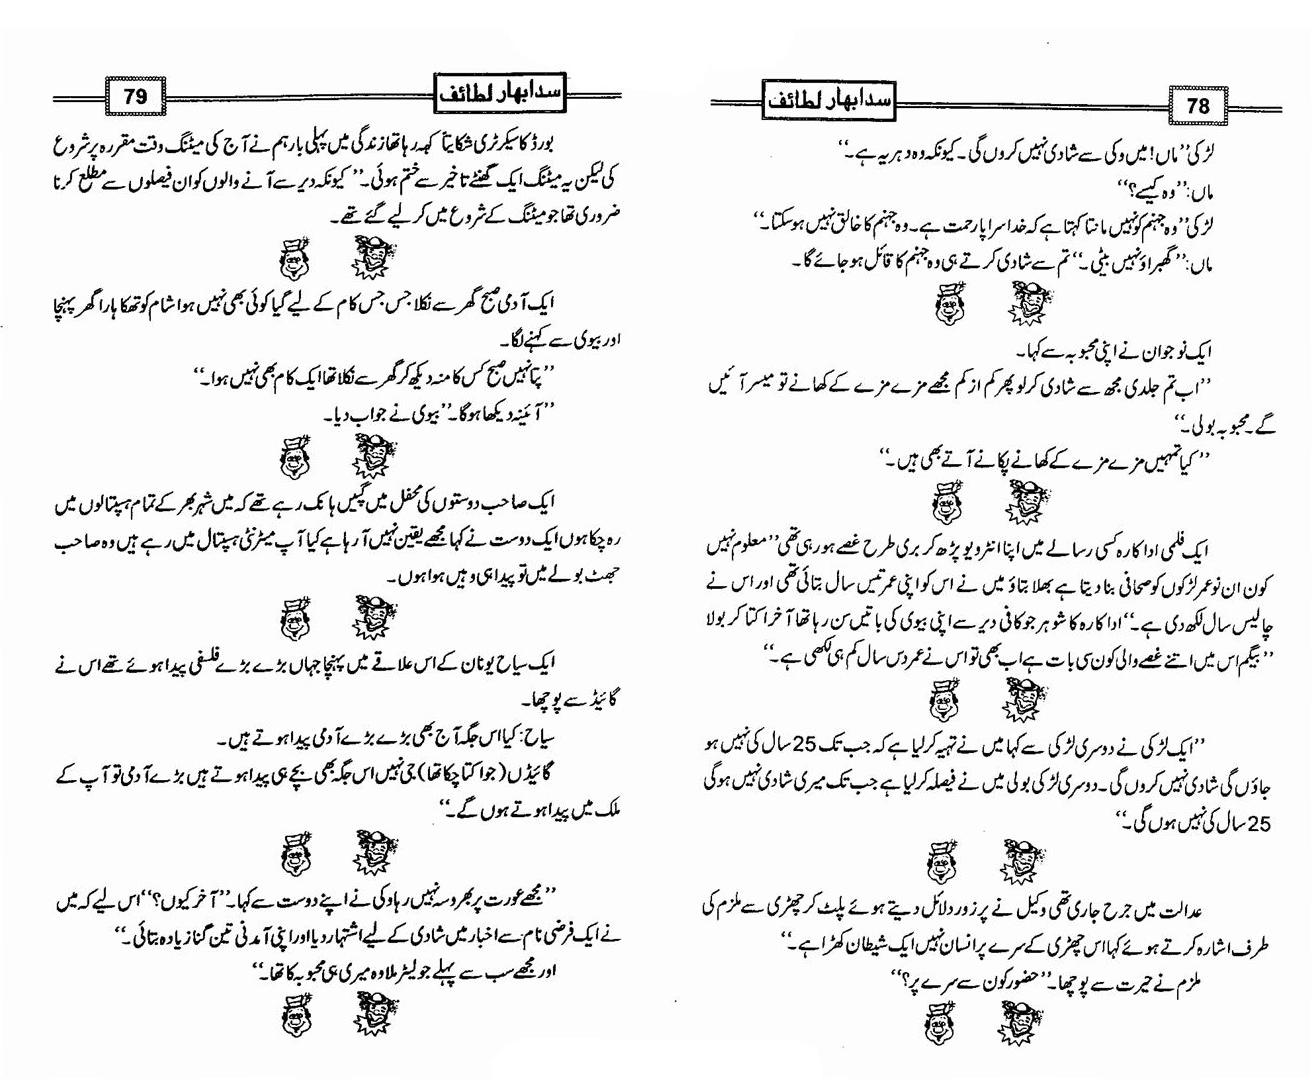 سدابهار لطائف
78
لڑکی ’’ماں! میں وکی سے شادی نہیں کروں گی۔ کیونکہ وہ دہریہ ہے۔‘‘
ماں: ’’وہ کیسے؟‘‘
لڑکی ’’وہ جہنم کو نہیں مانتا کہتا ہے کہ خدا سراپا رحمت ہے۔ وہ جہنم کا خالق نہیں ہو سکتا۔‘‘
ماں: ’’گھبراؤ نہیں بیٹی۔‘‘ تم سے شادی کرتے ہی وہ جہنم کا قائل ہو جائے گا۔
ایک نوجوان نے اپنی محبوبہ سے کہا۔
’’اب تم جلدی مجھ سے شادی کر لو پھر کم از کم مجھے مزے مزے کے کھانے تو میسر آئیں
گے۔ محبوبہ بولی۔‘‘
’’کیا تمہیں مزے مزے کے کھانے پکانے آتے بھی ہیں۔‘‘
ایک فلمی اداکارہ کسی رسالے میں اپنا انٹرویو پڑھ کر بری طرح غصے ہو رہی تھی ’’معلوم نہیں
کون ان نو عمر لڑکوں کو صحافی بنا دیتا ہے بھلا بتاؤ میں نے اس کو اپنی عمر تیس سال بتائی تھی اور اس نے
چالیس سال لکھ دی ہے۔‘‘ اداکارہ کا شوہر جو کافی دیر سے اپنی بیوی کی باتیں سن رہا تھا آخر اکتا کر بولا
’’بیگم اس میں اتنے غصے والی کون سی بات ہے اب بھی تو اس نے عمر دس سال کم ہی لکھی ہے۔‘‘
’’ایک لڑکی نے دوسری لڑکی سے کہا میں نے تہیہ کر لیا ہے کہ جب تک 25 سال کی نہیں ہو
جاؤں گی شادی نہیں کروں گی۔ دوسری لڑکی بولی میں نے فیصلہ کر لیا ہے جب تک میری شادی نہیں ہو گی
25 سال کی نہیں ہوں گی۔‘‘
عدالت میں جرح جاری تھی وکیل نے پر زور دلائل دیتے ہوئے پلٹ کر چھڑی سے ملزم کی
طرف اشارہ کرتے ہوئے کہا اس چھڑی کے سرے پر انسان نہیں ایک شیطان کھڑا ہے۔‘‘
ملزم نے حیرت سے پوچھا۔ ’’حضور کون سے سرے پر؟‘‘
سدابهار لطائف
79
بورڈ کا سیکرٹری شکایتاً کہہ رہا تھا زندگی میں پہلی بار ہم نے آج کی میٹنگ وقت مقررہ پر شروع
کی لیکن یہ میٹنگ ایک گھنٹے تاخیر سے ختم ہوئی۔‘‘ کیونکہ دیر سے آنے والوں کو ان فیصلوں سے مطلع کرنا
ضروری تھا جو میٹنگ کے شروع میں کر لیے گئے تھے۔
ایک آدمی صبح گھر سے نکلا جس جس کام کے لیے گیا کوئی بھی نہیں ہوا شام کو تھکا ہارا گھر پہنچا
اور بیوی سے کہنے لگا۔
’’پتا نہیں صبح کس کا منہ دیکھ کر گھر سے نکلا تھا ایک کام بھی نہیں ہوا۔‘‘
’’آئینہ دیکھا ہو گا۔‘‘ بیوی نے جواب دیا۔
ایک صاحب دوستوں کی محفل میں گپیں ہانک رہے تھے کہ میں شہر بھر کے تمام ہسپتالوں میں
رہ چکا ہوں ایک دوست نے کہا مجھے یقین نہیں آ رہا ہے کیا آپ میٹرنٹی ہسپتال میں رہے ہیں وہ صاحب
جھٹ بولے میں تو پیدا ہی وہیں ہوا ہوں۔
ایک سیاح یونان کے اس علاقے میں پہنچا جہاں بڑے بڑے فلسفی پیدا ہوئے تھے اس نے
گائیڈ سے پوچھا۔
سیاح: کیا اس جگہ آج بھی بڑے بڑے آدمی پیدا ہوتے ہیں۔
گائیڈں (جو اکتا چکا تھا) جی نہیں اس جگہ بھی بچے ہی پیدا ہوتے ہیں بڑے آدمی تو آپ کے
ملک میں پیدا ہوتے ہوں گے۔‘‘
’’مجھے عورت پر بھروسہ نہیں رہا وکی نے اپنے دوست سے کہا۔‘‘ ’’آخر کیوں؟‘‘ اس لیے کہ میں
نے ایک فرضی نام سے اخبار میں شادی کے لیے اشتہار دیا اور اپنی آمدنی تین گنا زیادہ بتائی۔‘‘
اور مجھے سب سے پہلے جو لیٹر ملا وہ میری ہی محبوبہ کا تھا۔‘‘